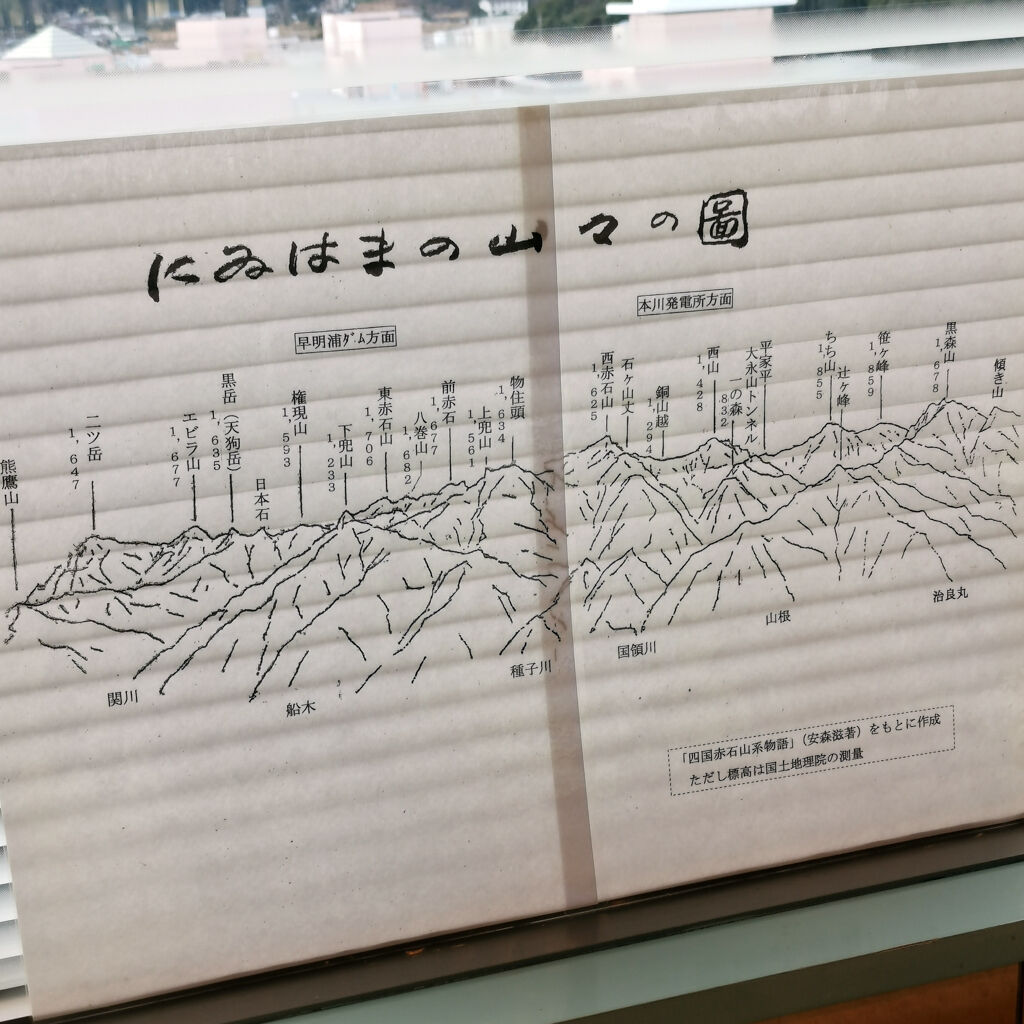 にゐはまの山々の圖
早明浦ダム方面
本川発電所方面
熊鷹山
二ツ岳
1,647
エビラ山
1,677
黒岳（天狗岳）
1,635
日本石
権現山
1,593
下兜山
1,233
東赤石山
1,706
八巻山
1,682
前赤石
1,677
上兜山
1,561
物住頭
1,634
西赤石山
1,625
石ヶ山丈
銅山越
1,294
西山
1,428
一の森
832
大永山トンネル
平家平
ちち山
1,855
辻ヶ峰
笹ヶ峰
1,859
黒森山
1,678
傾き山
関川
船木
種子川
国領川
山根
治良丸
「四国赤石山系物語」（安森滋著）をもとに作成
ただし標高は国土地理院の測量